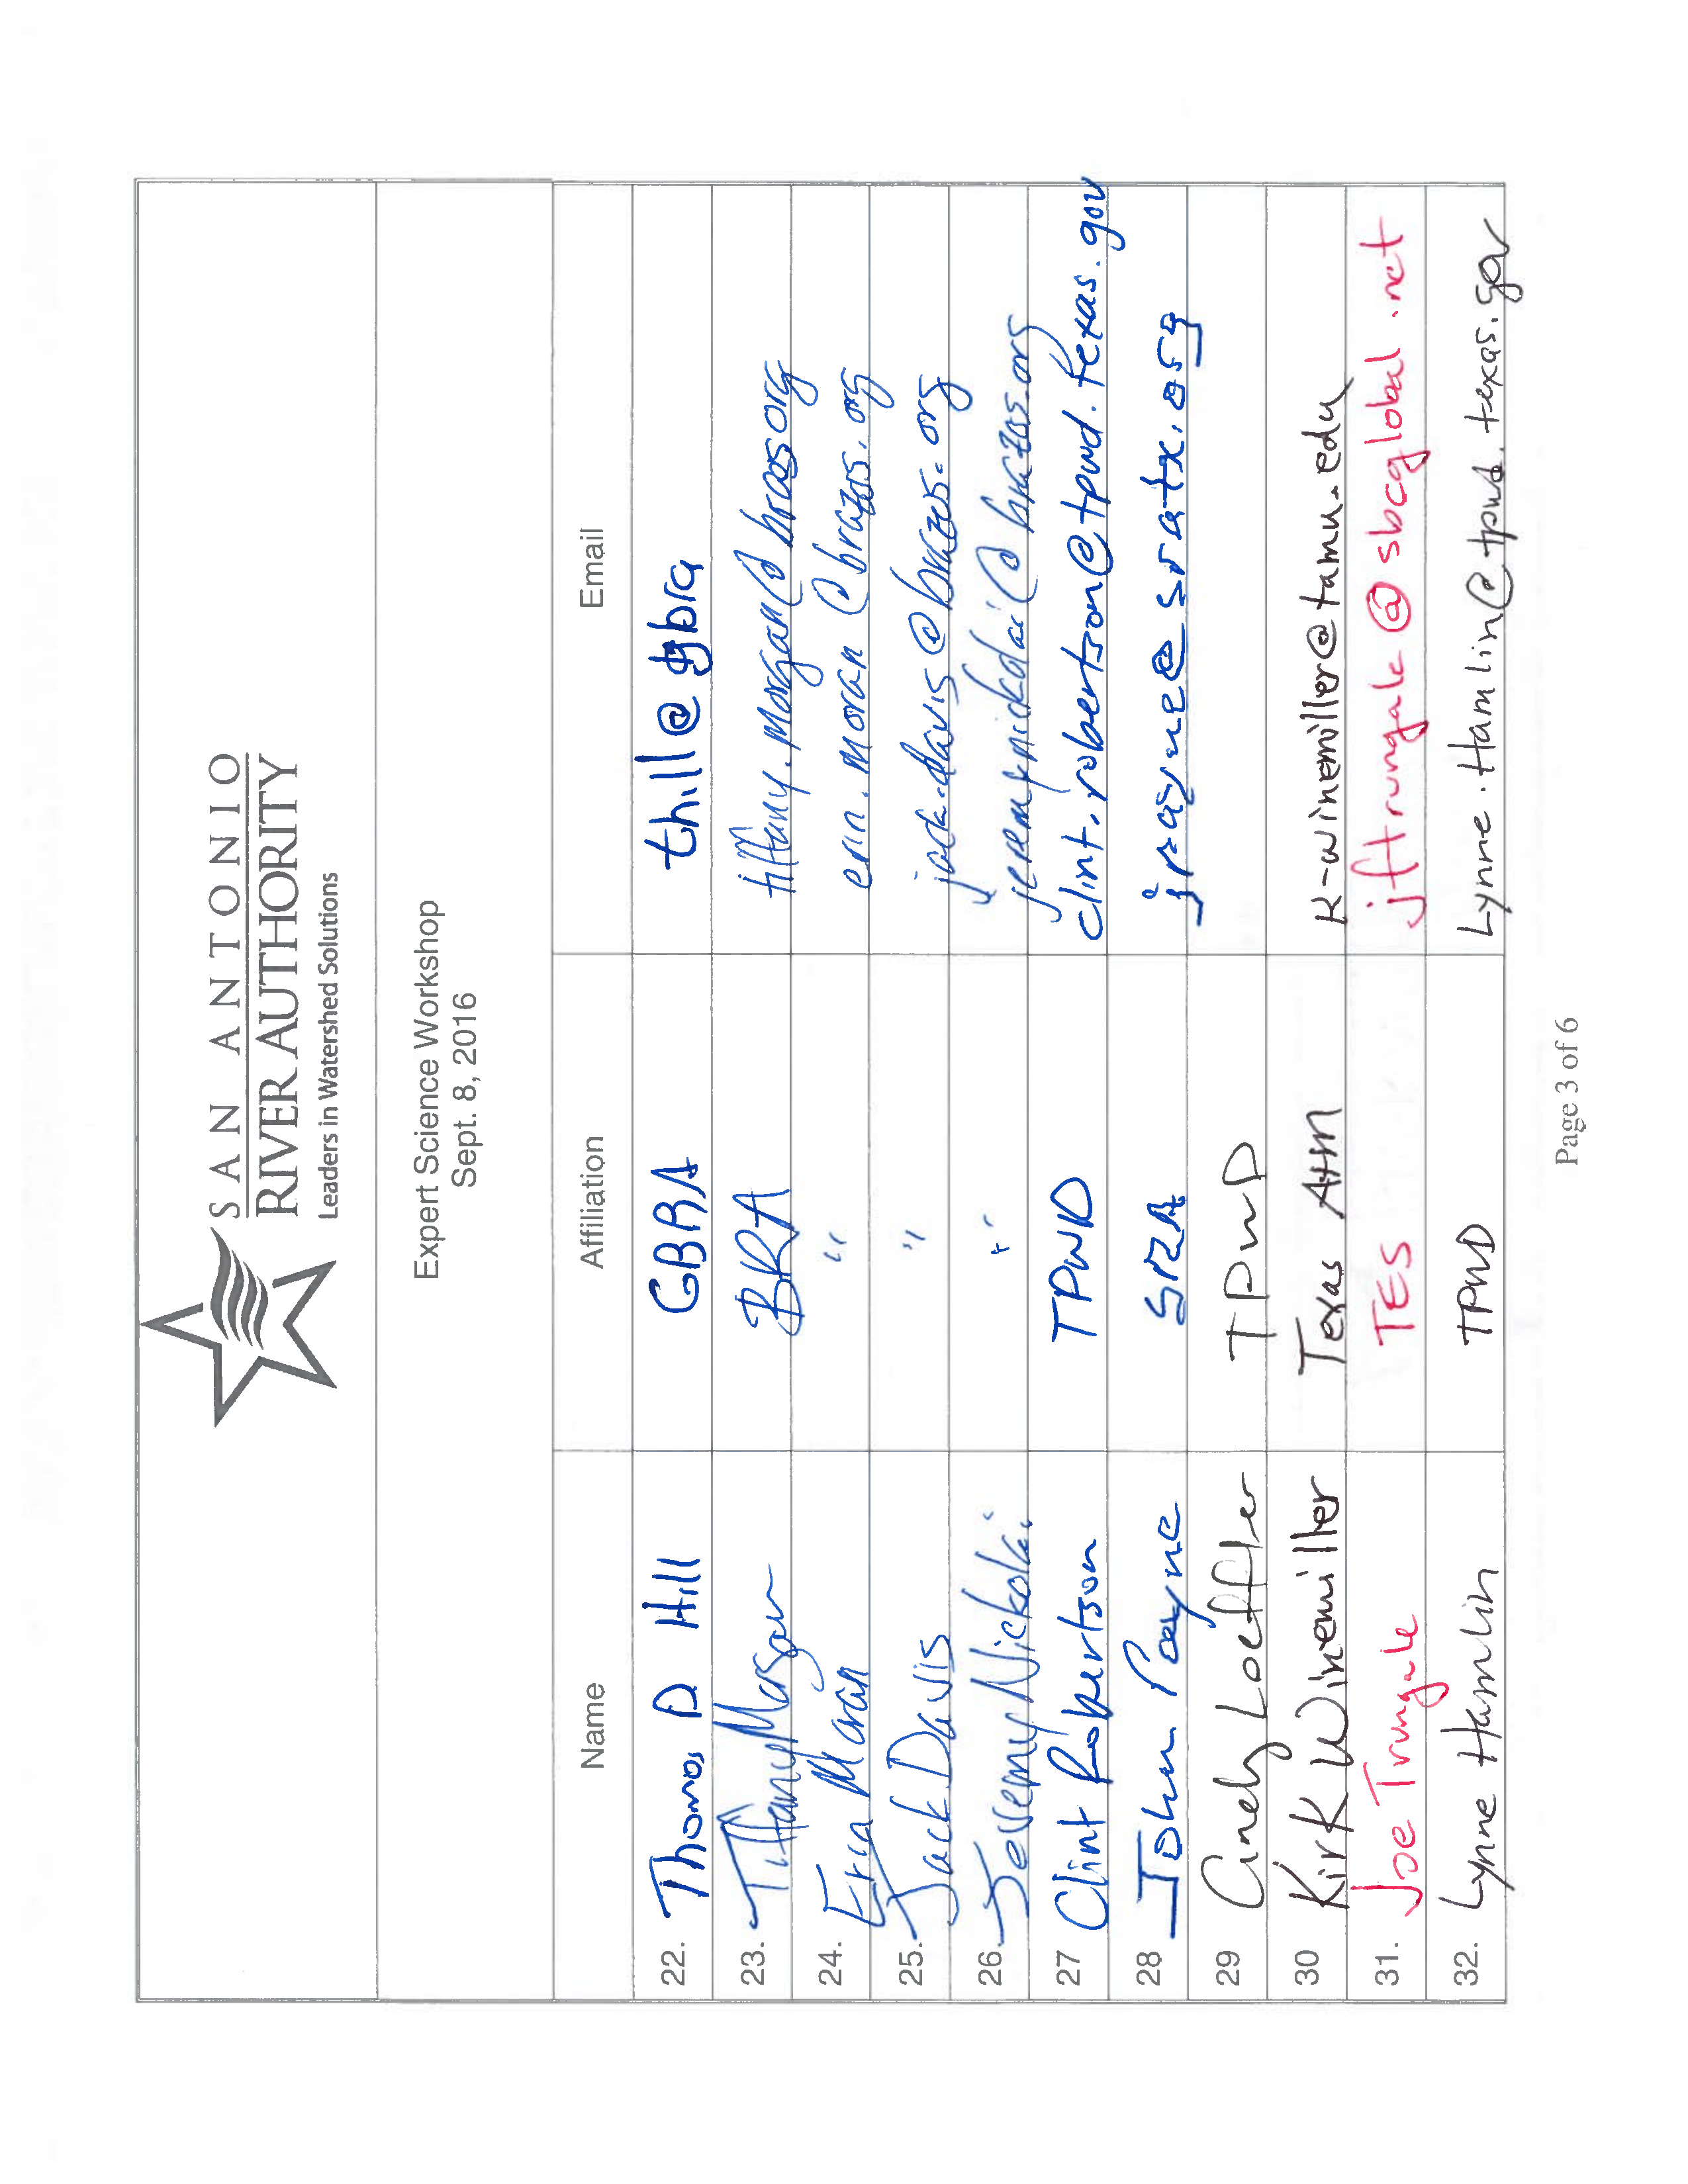 SAN ANTONIO
RIVER AUTHORITY
Leaders in Watershed Solutions
Expert Science Workshop
Sept. 8, 2016
Name Affiliation Email
22. Thomas D Hill GBRA thill@gbra
23. Tiffany Morgan BRA tiffany.morgan@brazos.org
24. Erin Moran " erin.moran@brazos.org
25. Jack Davis " jack.davis@brazos.org
26. Nickolai "
27 Clint Robertson TPWD clint.robertson@tpwd.texas.gov
28 John Payne SRA jpayne@sratx.org
29 Cindy Loeffler TPWD
30 Kirk Winemiller Texas A+M K-winemiller@tamu.edu
31. Joe Trungale TES jftrungale@sbcglobal.net
32. Lynne Hamlin TPWD Lynne.Hamlin@tpwd.texas.gov
Page 3 of 6